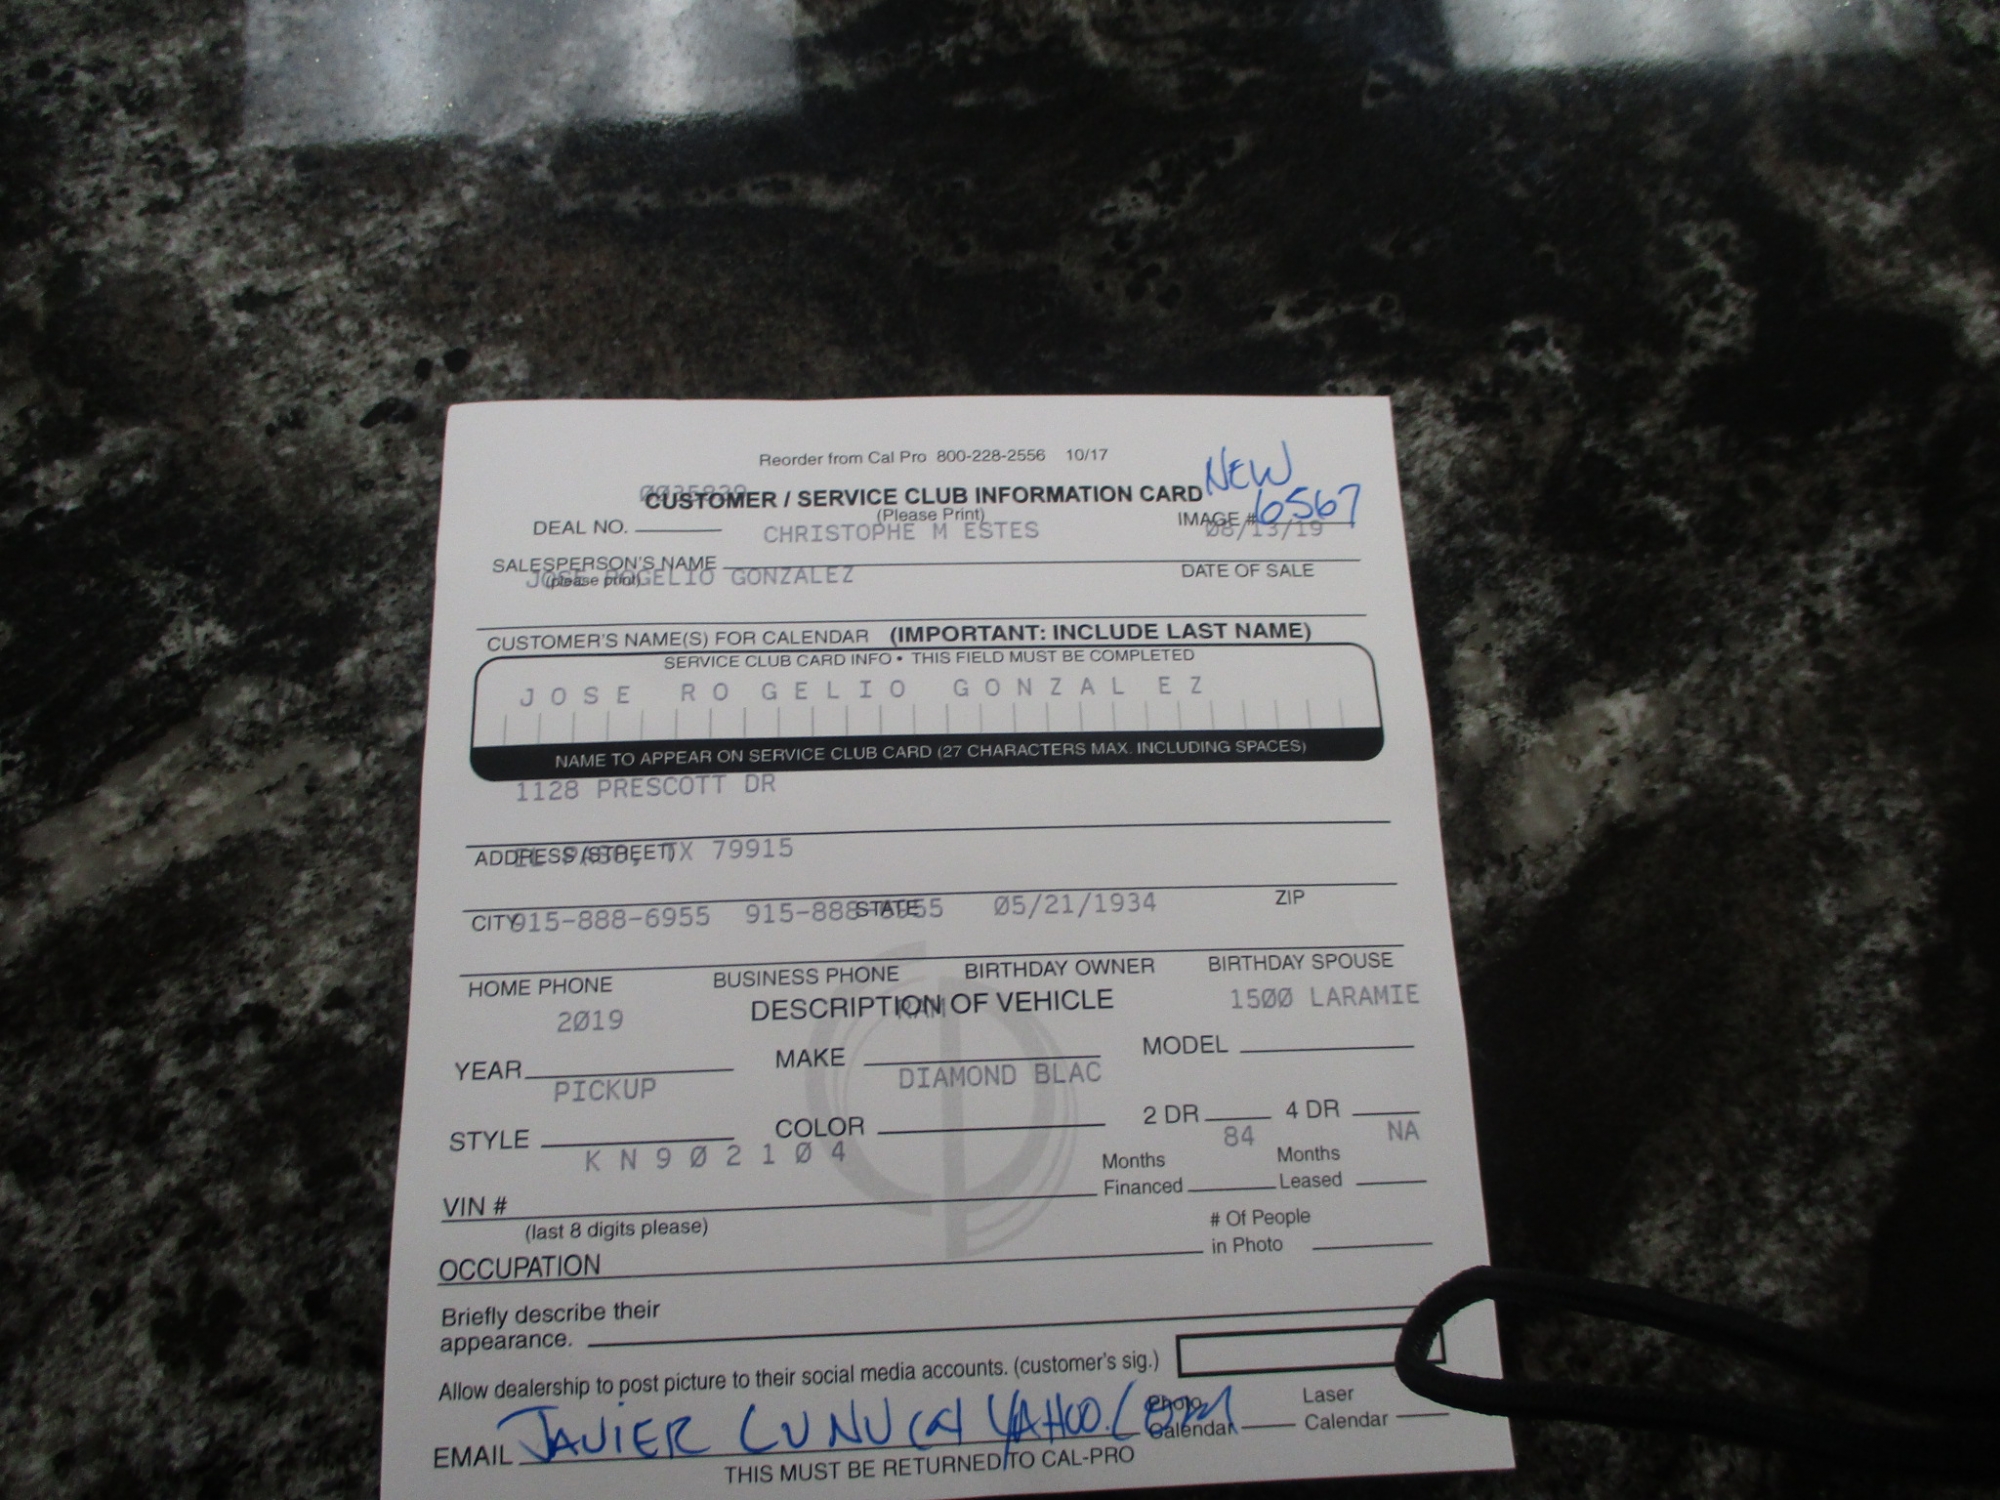 Reorder from Cal Pro 800-228-2556 10/17
NEW
CUSTOMER / SERVICE CLUB INFORMATION CARD
(Please Print)
6567
DEAL NO.
CHRISTOPHE M ESTES
IMAGE #
08/13/19
SALESPERSON'S NAME
(please print)
JOSE ROGELIO GONZALEZ
DATE OF SALE
CUSTOMER'S NAME(S) FOR CALENDAR (IMPORTANT: INCLUDE LAST NAME)
SERVICE CLUB CARD INFO • THIS FIELD MUST BE COMPLETED
JOSE ROGELIO GONZALEZ
NAME TO APPEAR ON SERVICE CLUB CARD (27 CHARACTERS MAX. INCLUDING SPACES)
1128 PRESCOTT DR
ADDRESS (STREET)
EL PASO, TX 79915
CITY
STATE
ZIP
915-888-6955 915-888-6955 05/21/1934
HOME PHONE BUSINESS PHONE BIRTHDAY OWNER BIRTHDAY SPOUSE
DESCRIPTION OF VEHICLE
2019 RAM 1500 LARAMIE
YEAR MAKE MODEL
PICKUP DIAMOND BLAC
STYLE COLOR 2 DR 4 DR
KN902104 84 NA
VIN # Months Financed Months Leased
(last 8 digits please)
# Of People
in Photo
OCCUPATION
Briefly describe their
appearance.
Allow dealership to post picture to their social media accounts. (customer's sig.)
Photo Calendar
Laser Calendar
EMAIL JAVIER LUNU@YAHOO.COM
THIS MUST BE RETURNED TO CAL-PRO